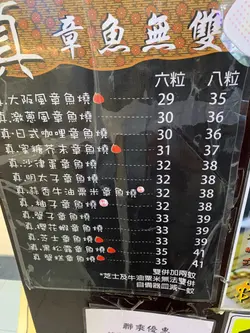 真 章魚無雙
六粒 八粒
真.大阪風章魚燒 29 35
真.激蔥風章魚燒 30 36
真.日式咖哩章魚燒 30 36
真.蜜糖芥末章魚燒 31 37
真.沙律軍章魚燒 32 38
真.明太子章魚燒 32 38
真.蒜香牛油粟米章魚燒 32 38
真.柚子章魚燒 32 38
真.蟹子章魚燒 33 39
真.櫻花蝦章魚燒 33 39
真.芝士章魚燒 33 39
真.黑松露章魚燒 35 41
真.蟹糕章魚燒 35 41
雙併加兩蚊
*芝士及牛油粟米無法雙併
自備器皿減一蚊